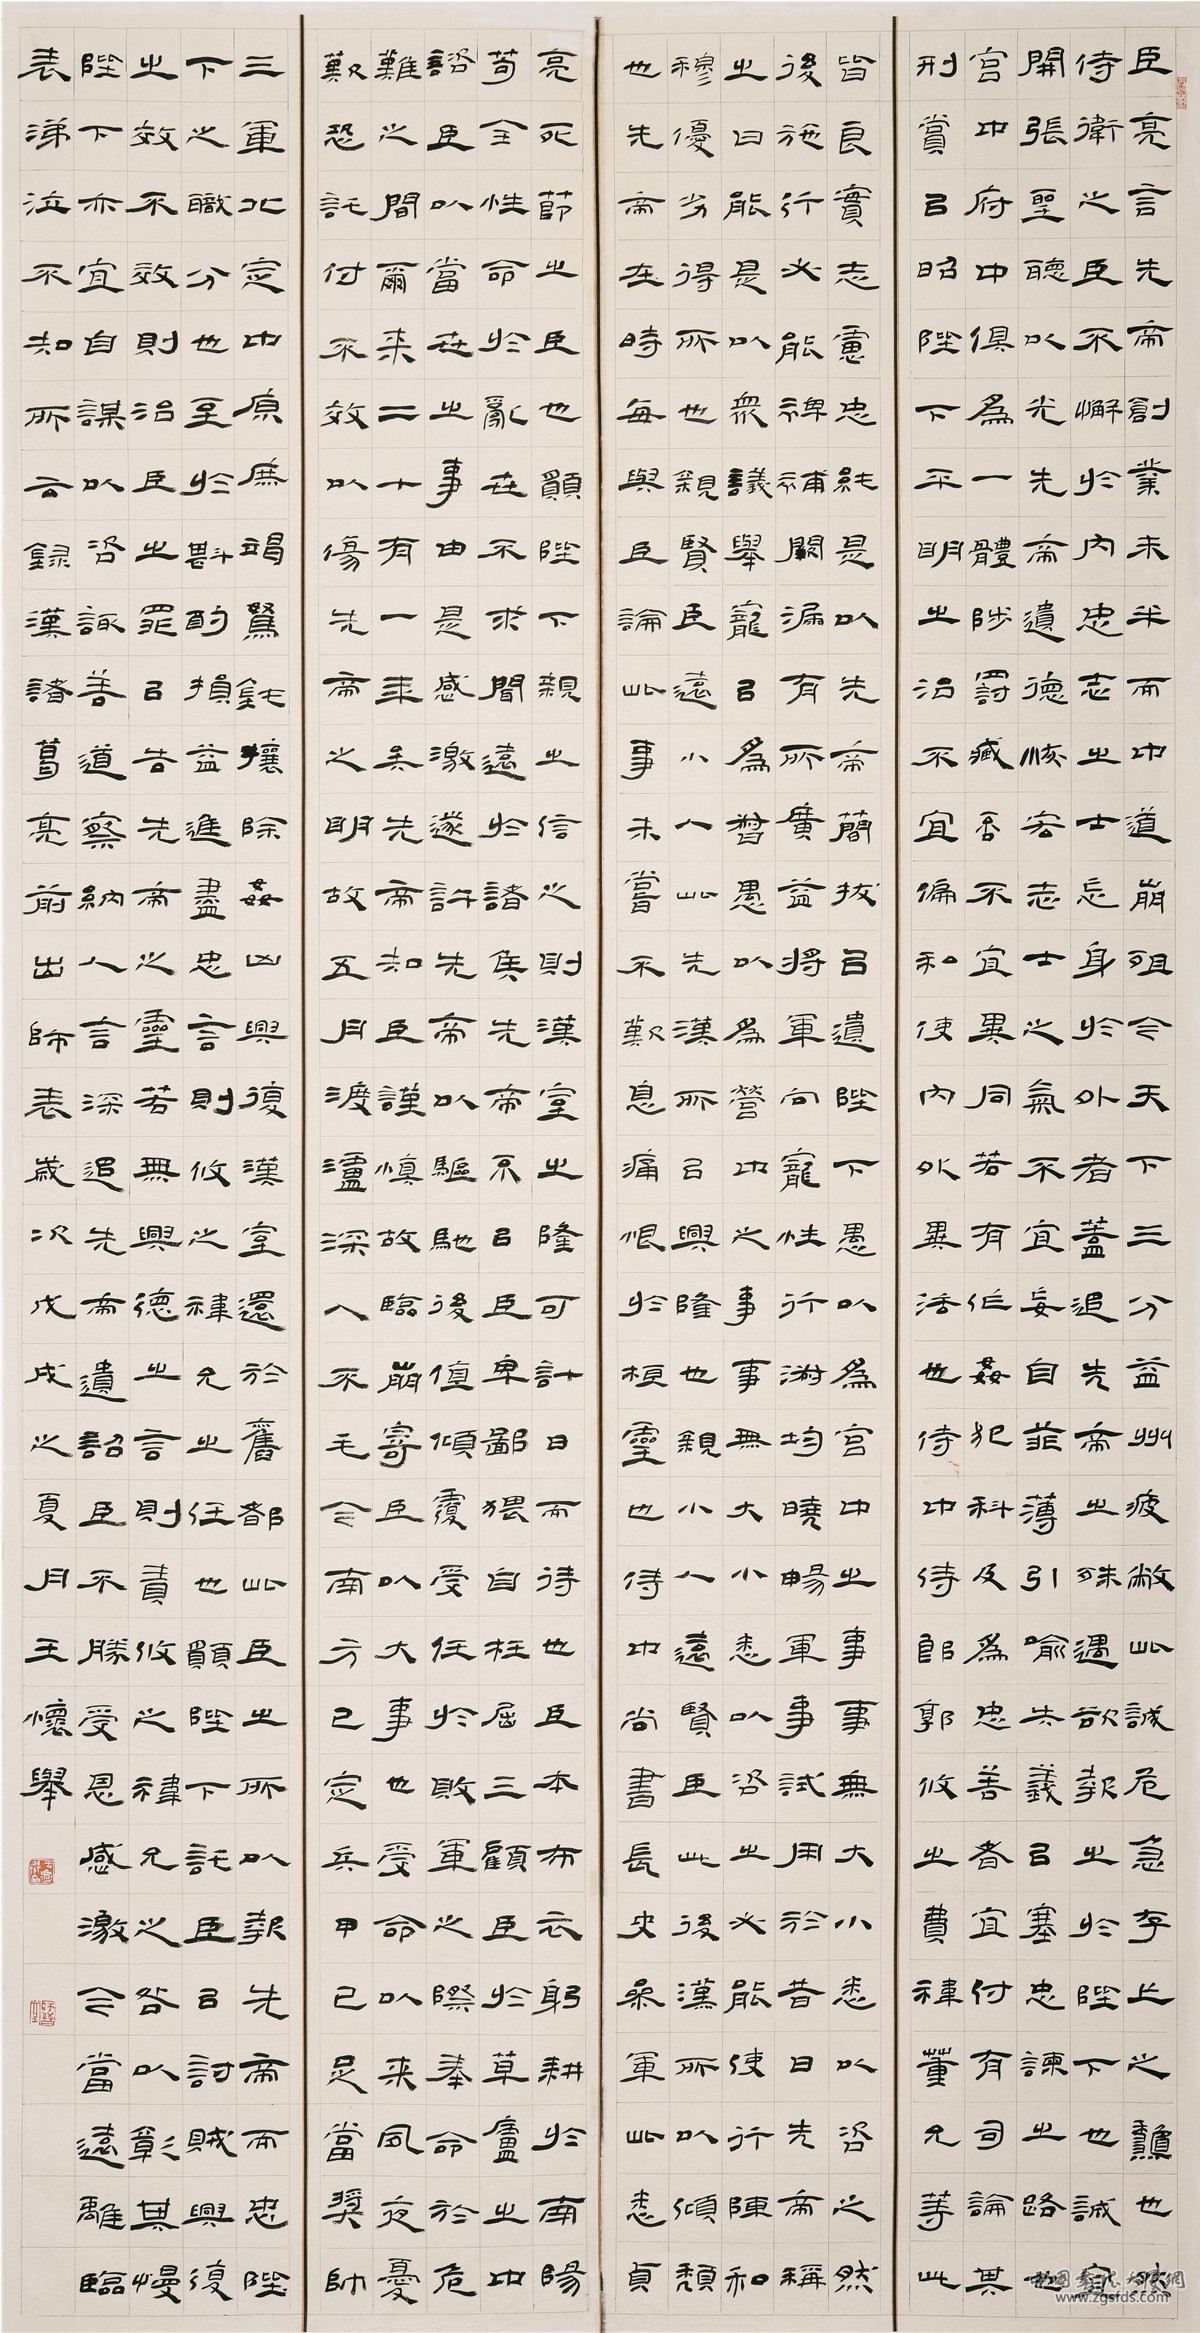 臣亮言先帝創業未半而中道崩殂今天下三分益州疲敝此誠危急存亡之龝也然
侍衛之臣不懈於內忠志之士忘身於外者蓋追先帝之殊遇欲報之於陛下也誠宜
開張聖聽以光先帝遺德恢宏志士之氣不宜妄自菲薄引喻失義以塞忠諫之路也
宮中府中俱為一體陟罰臧否不宜異同若有作姦犯科及為忠善者宜付有司論其
刑賞以昭陛下平明之治不宜偏私使內外異法也侍中侍郎郭攸之費禕董允等此
皆良實志慮忠純是以先帝簡拔以遺陛下愚以為宮中之事事無大小悉以咨之然
後施行必能裨補闕漏有所廣益將軍向寵性行淑均曉暢軍事試用於昔日先帝稱
之曰能是以眾議舉寵以為督愚以為營中之事事無大小悉以咨之必能使行陳和
穆優劣得所也親賢臣遠小人此先漢所以興隆也親小人遠賢臣此後漢所以傾頹
也先帝在時每與臣論此事未嘗不歎息痛恨於桓靈也侍中尚書長史參軍此悉貞
亮死節之臣也願陛下親之信之則漢室之隆可計日而待也臣本布衣躬耕於南陽
苟全性命於亂世不求聞達於諸侯先帝不以臣卑鄙猥自枉屈三顧臣於草廬之中
諮臣以當世之事由是感激遂許先帝以驅馳後值傾覆受任於敗軍之際奉命於危
難之間爾来二十有一年矣先帝知臣謹慎故臨崩寄臣以大事也受命以来夙夜憂
歎恐託付不效以傷先帝之明故五月渡瀘深入不毛今南方已定兵甲已足當獎帥
三軍北定中原庶竭駑鈍攘除姦凶興復漢室還於舊都此臣之所以報先帝而忠陛
下之職分也至於斟酌損益進盡忠言則攸之禕允之任也願陛下託臣以討賊興復
之效不效則治臣之罪以告先帝之靈若無興德之言則責攸之禕允之咎以彰其慢
陛下亦宜自謀以咨諏善道察納人言深追先帝遺詔臣不勝受恩感激今當遠離臨
表涕泣不知所云錄漢諸葛亮前出師表歲次戊戌之夏月王懷舉
www.zgsfds.com